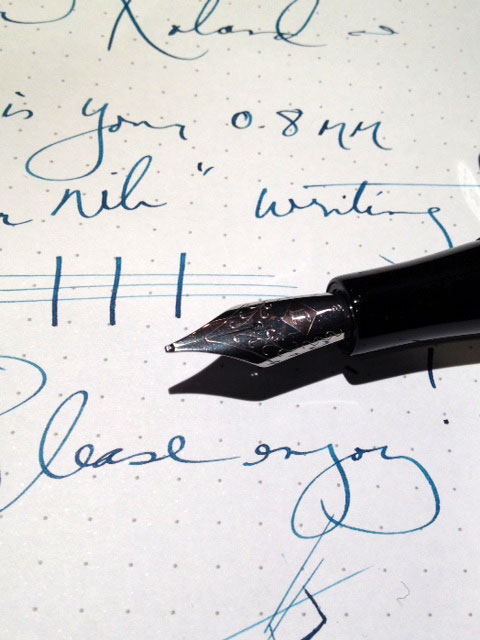 Roland
is your 0.8 MM
nib" writing
Please enjoy